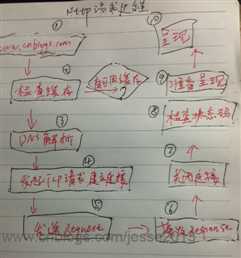 http请求过程
①
www.cnblogs.com
②
检查缓存
③
DNS解析
④
发起TCP请求建立连接
⑤
发送Request
⑥
Response
⑦
关闭连接
⑧
检查状态码
⑨
准备呈现
⑩
呈现
www.cnblogs.com/jesse2013